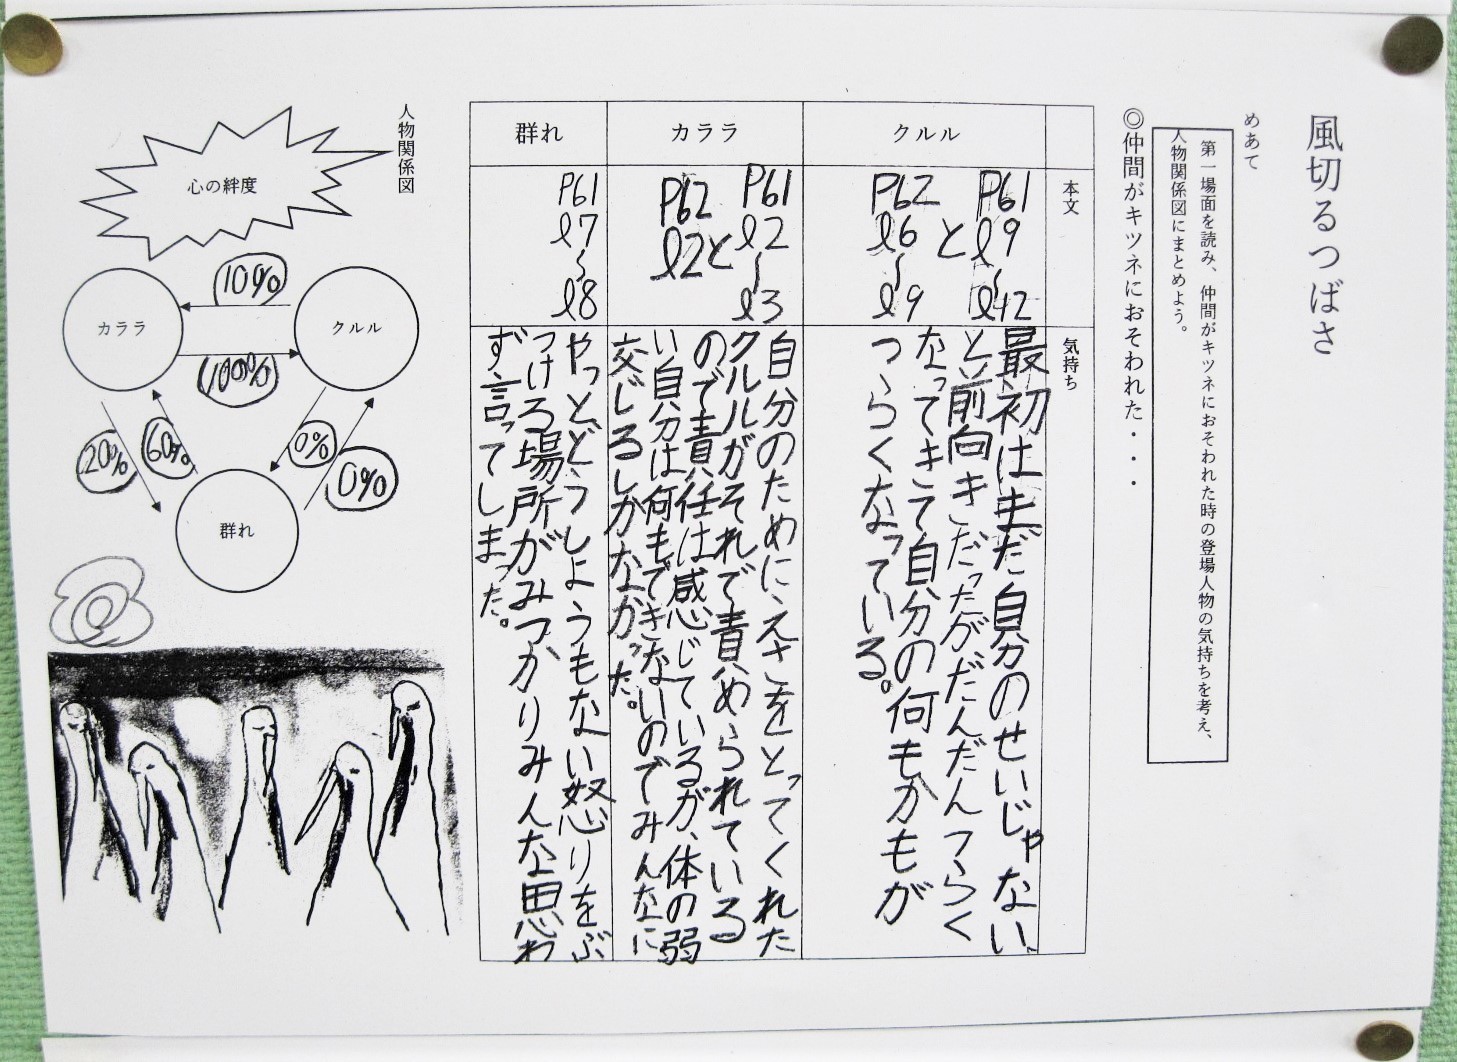 風切るつばさ
めあて
第一場面を読み、仲間がキツネにおそわれた時の登場人物の気持ちを考え、
人物関係図にまとめよう。
◎仲間がキツネにおそわれた・・・
本文
気持ち
クルル
P61
l9
〜
l12
と
P62
l6
〜
l9
最初はまだ自分のせいじゃない、
と前向きだったが、だんだんつらく
なってきて自分の何もかもが
つらくなっている。
カララ
P61
l2
〜
l3
と
P62
l2
自分のためにえさをとってくれた
クルルがそれで責められている
ので責任は感じているが、体の弱
い自分は何もできないのでみんなに
交じるしかなかった。
群れ
P61
l7
〜
l8
やっとどうしようもない怒りをぶ
つける場所がみつかりみんな思わ
ず言ってしまった。
人物関係図
心の絆度
クルル
カララ
群れ
10%
100%
20%
60%
0%
0%